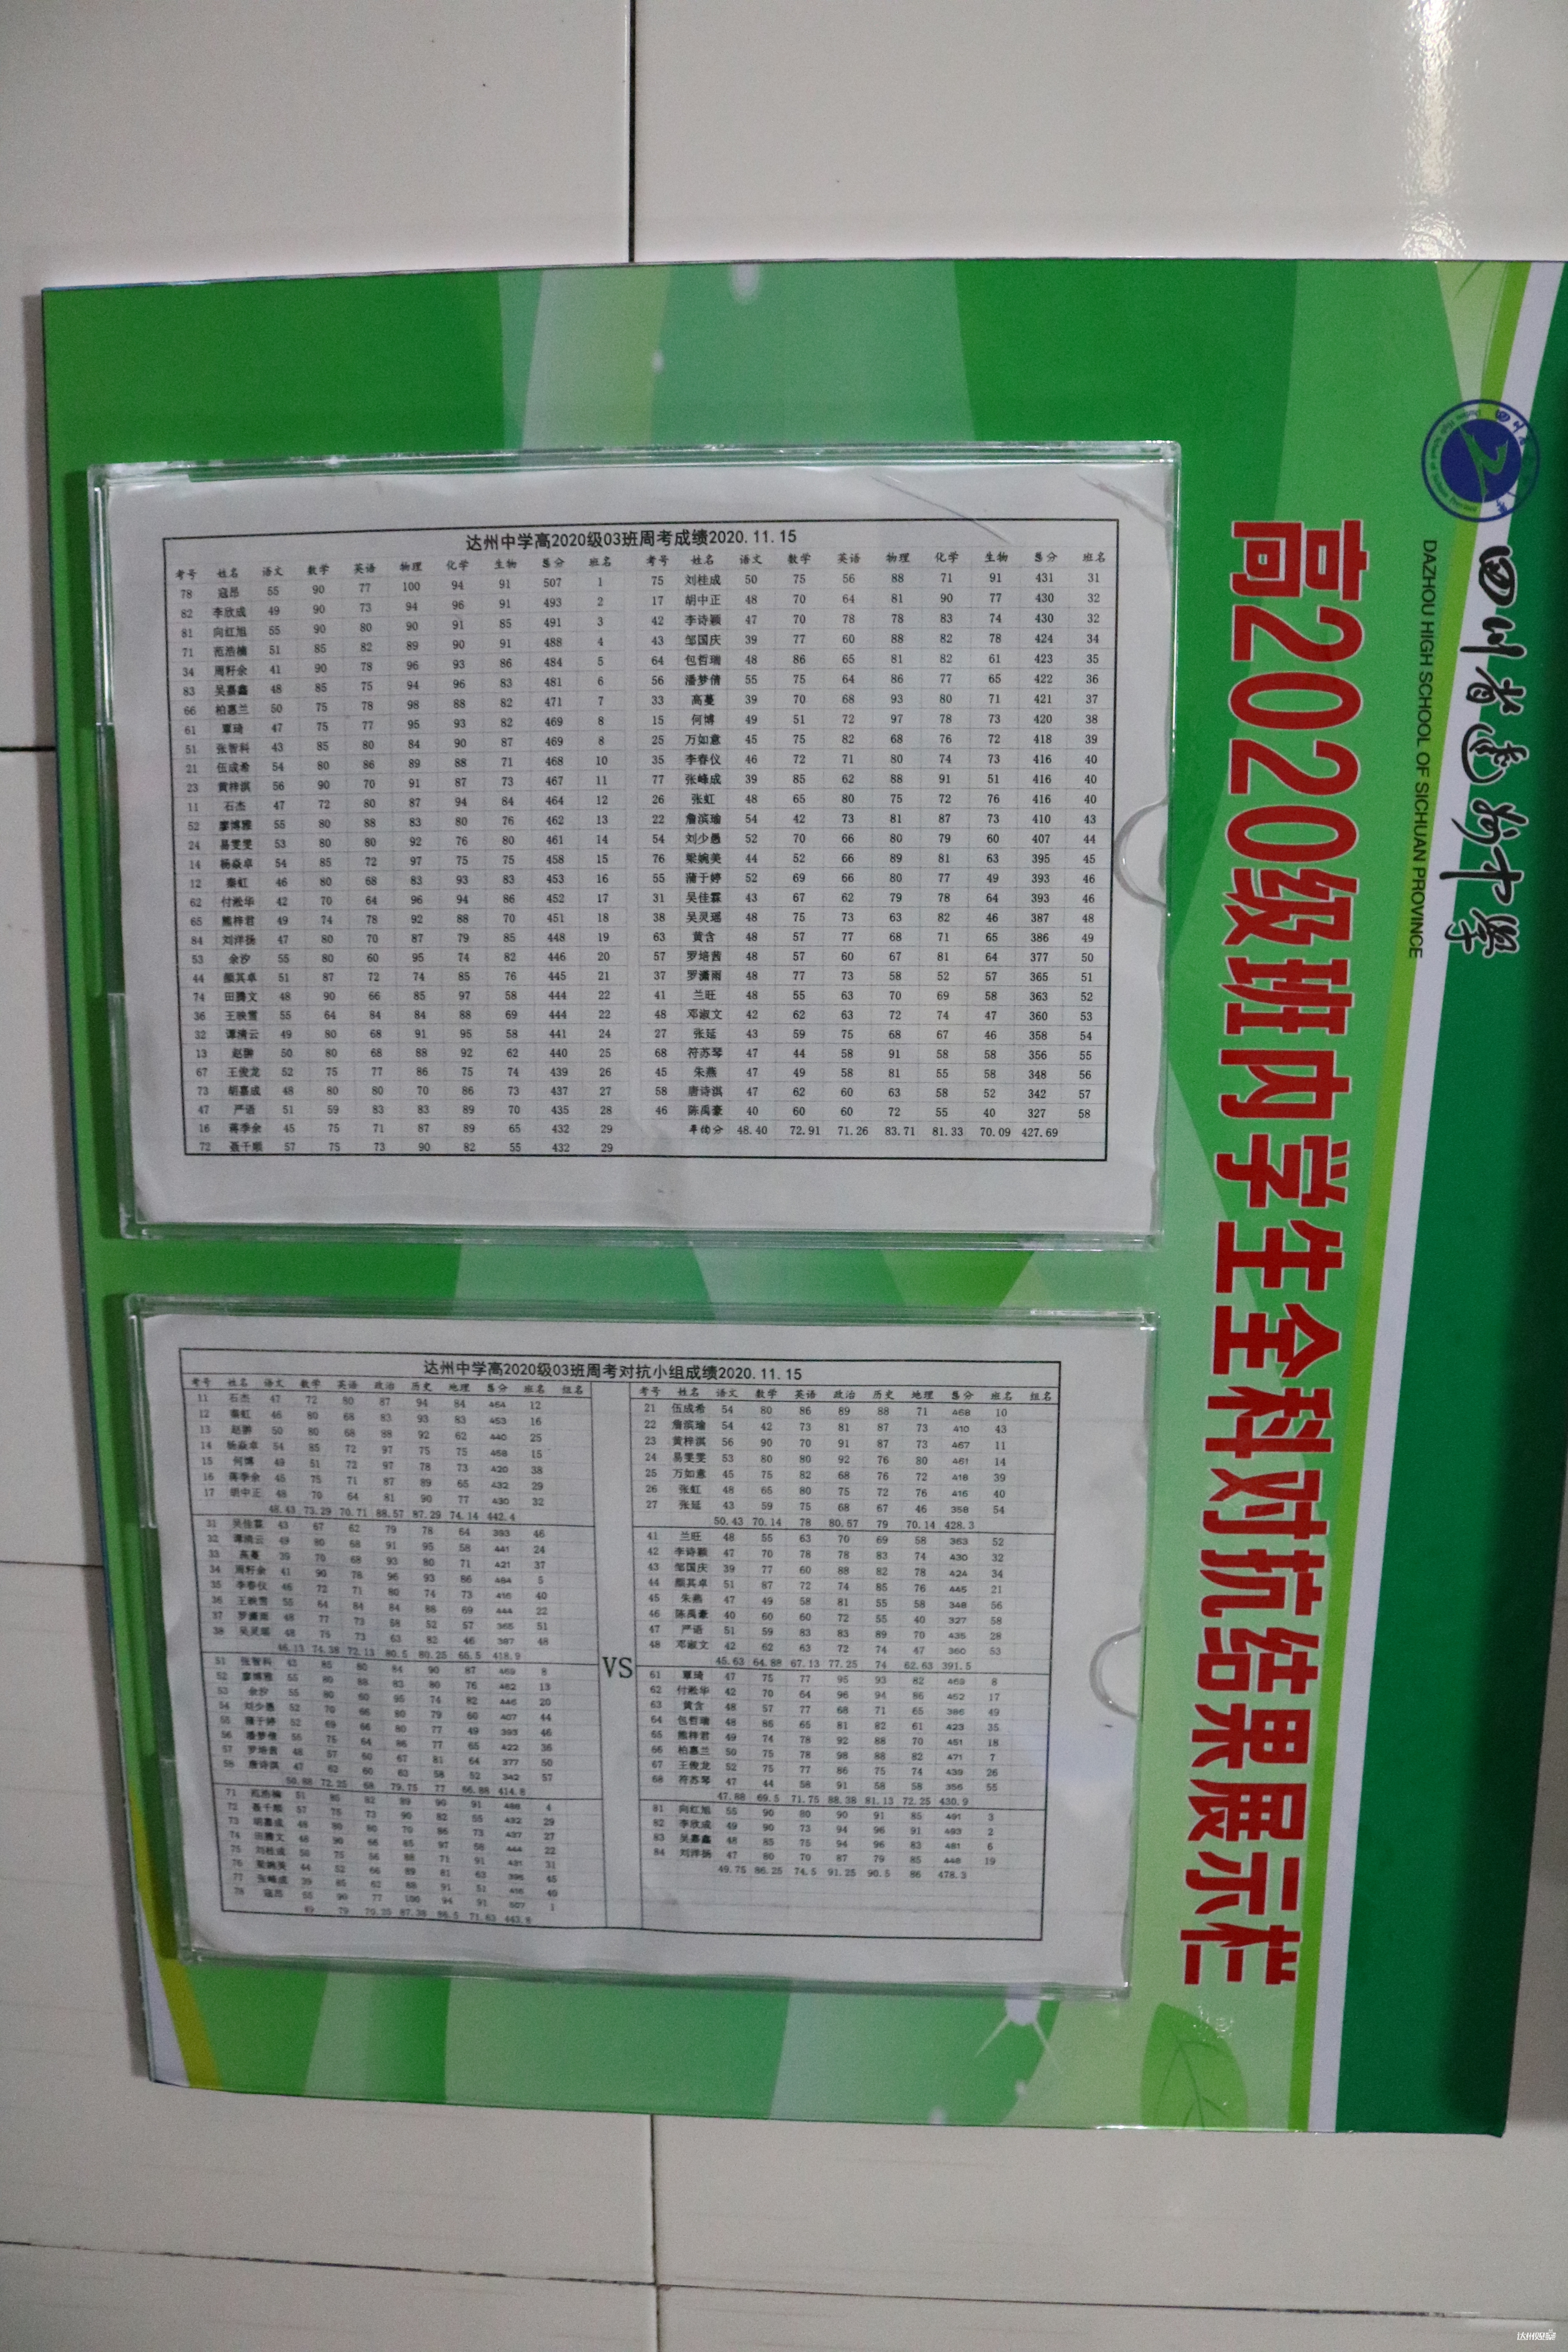 四川省达州中学
DAZHOU HIGH SCHOOL OF SICHUAN PROVINCE
高2020级班内学生全科对抗结果展示栏
达州中学高2020级03班周考成绩2020.11.15
考号 姓名 语文 数学 英语 物理 化学 生物 总分 班名 考号 姓名 语文 数学 英语 物理 化学 生物 总分 班名
78 寇昂 55 90 77 100 94 91 507 1 75 刘桂成 50 75 56 88 71 91 431 31
82 李欣成 49 90 73 94 96 91 493 2 17 胡中正 48 70 64 81 90 77 430 32
81 向红旭 55 90 80 90 91 85 491 3 42 李诗颖 47 70 78 78 83 74 430 32
71 范浩楠 51 85 82 89 90 91 488 4 43 邹国庆 39 77 60 88 82 78 424 34
34 周籽余 41 90 78 96 93 86 484 5 64 包哲瑞 48 86 65 81 82 61 423 35
83 吴嘉鑫 48 85 75 94 96 83 481 6 56 潘梦倩 55 75 64 86 77 65 422 36
66 柏惠兰 50 75 78 98 88 82 471 7 33 高蔓 39 70 68 93 80 71 421 37
61 覃琦 47 75 77 95 93 82 469 8 15 何博 49 51 72 97 78 73 420 38
51 张智科 43 85 80 84 90 87 469 8 25 万如意 45 75 82 68 76 72 418 39
21 伍成希 54 80 86 89 88 71 468 10 35 李春仪 46 72 71 80 74 73 416 40
23 黄梓淇 56 90 70 91 87 73 467 11 77 张峰成 39 85 62 88 91 51 416 40
11 石杰 47 72 80 87 94 84 464 12 26 张虹 48 65 80 75 72 76 416 40
52 廖博雅 55 80 88 83 80 76 462 13 22 詹滨瑜 54 42 73 81 87 73 410 43
24 易雯雯 53 80 80 92 76 80 461 14 54 刘少愚 52 70 66 80 79 60 407 44
14 杨焱卓 54 85 72 97 75 75 458 15 76 梁婉美 44 52 66 89 81 63 395 45
12 秦虹 46 80 68 83 93 83 453 16 55 蒲于婷 52 69 66 80 77 49 393 46
62 付淞华 42 70 64 96 94 86 452 17 31 吴佳霖 43 67 62 79 78 64 393 46
65 熊梓君 49 74 78 92 88 70 451 18 38 吴灵瑶 48 75 73 63 82 46 387 48
84 刘洋扬 47 80 70 87 79 85 448 19 63 黄含 48 57 77 68 71 65 386 49
53 余汐 55 80 60 95 74 82 446 20 57 罗培茜 48 57 60 67 81 64 377 50
44 颜其卓 51 87 72 74 85 76 445 21 37 罗潇雨 48 77 73 58 52 57 365 51
74 田腾文 48 90 66 85 97 58 444 22 41 兰旺 48 55 63 70 69 58 363 52
36 王映雪 55 64 84 84 88 69 444 22 48 邓淑文 42 62 63 72 74 47 360 53
32 谭清云 49 80 68 91 95 58 441 24 27 张延 43 59 75 68 67 46 358 54
13 赵翀 50 80 68 88 92 62 440 25 68 符苏琴 47 44 58 91 58 58 356 55
67 王俊龙 52 75 77 86 75 74 439 26 45 朱燕 47 49 58 81 55 58 348 56
73 胡嘉成 48 80 80 70 86 73 437 27 58 唐诗淇 47 62 60 63 58 52 342 57
47 严语 51 59 83 83 89 70 435 28 46 陈禹豪 40 60 60 72 55 40 327 58
16 蒋季余 45 75 71 87 89 65 432 29 平均分 48.40 72.91 71.26 83.71 81.33 70.09 427.69
72 聂千顺 57 75 73 90 82 55 432 29
达州中学高2020级03班周考对抗小组成绩2020.11.15
考号 姓名 语文 数学 英语 政治 历史 地理 总分 班名 组名
11 石杰 47 72 80 87 94 84 464 12
12 秦虹 46 80 68 83 93 83 453 16
13 赵翀 50 80 68 88 92 62 440 25
14 杨焱卓 54 85 72 97 75 75 458 15
15 何博 49 51 72 97 78 73 420 38
16 蒋季余 45 75 71 87 89 65 432 29
17 胡中正 48 70 64 81 90 77 430 32
48.43 73.29 70.71 88.57 87.29 74.14 442.4
31 吴佳霖 43 67 62 79 78 64 393 46
32 谭清云 49 80 68 91 95 58 441 24
33 高蔓 39 70 68 93 80 71 421 37
34 周籽余 41 90 78 96 93 86 484 5
35 李春仪 46 72 71 80 74 73 416 40
36 王映雪 55 64 84 84 88 69 444 22
37 罗潇雨 48 77 73 58 52 57 365 51
38 吴灵瑶 48 75 73 63 82 46 387 48
46.13 74.38 72.13 80.5 80.25 65.5 418.9
51 张智科 43 85 80 84 90 87 469 8
52 廖博雅 55 80 88 83 80 76 462 13
53 余汐 55 80 60 95 74 82 446 20
54 刘少愚 52 70 66 80 79 60 407 44
55 蒲于婷 52 69 66 80 77 49 393 46
56 潘梦倩 55 75 64 86 77 65 422 36
57 罗培茜 48 57 60 67 81 64 377 50
58 唐诗淇 47 62 60 63 58 52 342 57
50.88 72.25 68 79.75 77 66.88 414.8
71 范浩楠 51 85 82 89 90 91 488 4
72 聂千顺 57 75 73 90 82 55 432 29
73 胡嘉成 48 80 80 70 86 73 437 27
74 田腾文 48 90 66 85 97 58 444 22
75 刘桂成 50 75 56 88 71 91 431 31
76 梁婉美 44 52 66 89 81 63 395 45
77 张峰成 39 85 62 88 91 51 416 40
78 寇昂 55 90 77 100 94 91 507 1
49 79 70.25 87.38 86.5 71.63 443.8
VS
考号 姓名 语文 数学 英语 政治 历史 地理 总分 班名 组名
21 伍成希 54 80 86 89 88 71 468 10
22 詹滨瑜 54 42 73 81 87 73 410 43
23 黄梓淇 56 90 70 91 87 73 467 11
24 易雯雯 53 80 80 92 76 80 461 14
25 万如意 45 75 82 68 76 72 418 39
26 张虹 48 65 80 75 72 76 416 40
27 张延 43 59 75 68 67 46 358 54
50.43 70.14 78 80.57 79 70.14 428.3
41 兰旺 48 55 63 70 69 58 363 52
42 李诗颖 47 70 78 78 83 74 430 32
43 邹国庆 39 77 60 88 82 78 424 34
44 颜其卓 51 87 72 74 85 76 445 21
45 朱燕 47 49 58 81 55 58 348 56
46 陈禹豪 40 60 60 72 55 40 327 58
47 严语 51 59 83 83 89 70 435 28
48 邓淑文 42 62 63 72 74 47 360 53
45.63 64.88 67.13 77.25 74 62.63 391.5
61 覃琦 47 75 77 95 93 82 469 8
62 付淞华 42 70 64 96 94 86 452 17
63 黄含 48 57 77 68 71 65 386 49
64 包哲瑞 48 86 65 81 82 61 423 35
65 熊梓君 49 74 78 92 88 70 451 18
66 柏惠兰 50 75 78 98 88 82 471 7
67 王俊龙 52 75 77 86 75 74 439 26
68 符苏琴 47 44 58 91 58 58 356 55
47.88 69.5 71.75 88.38 81.13 72.25 430.9
81 向红旭 55 90 80 90 91 85 491 3
82 李欣成 49 90 73 94 96 91 493 2
83 吴嘉鑫 48 85 75 94 96 83 481 6
84 刘洋扬 47 80 70 87 79 85 448 19
49.75 86.25 74.5 91.25 90.5 86 478.3